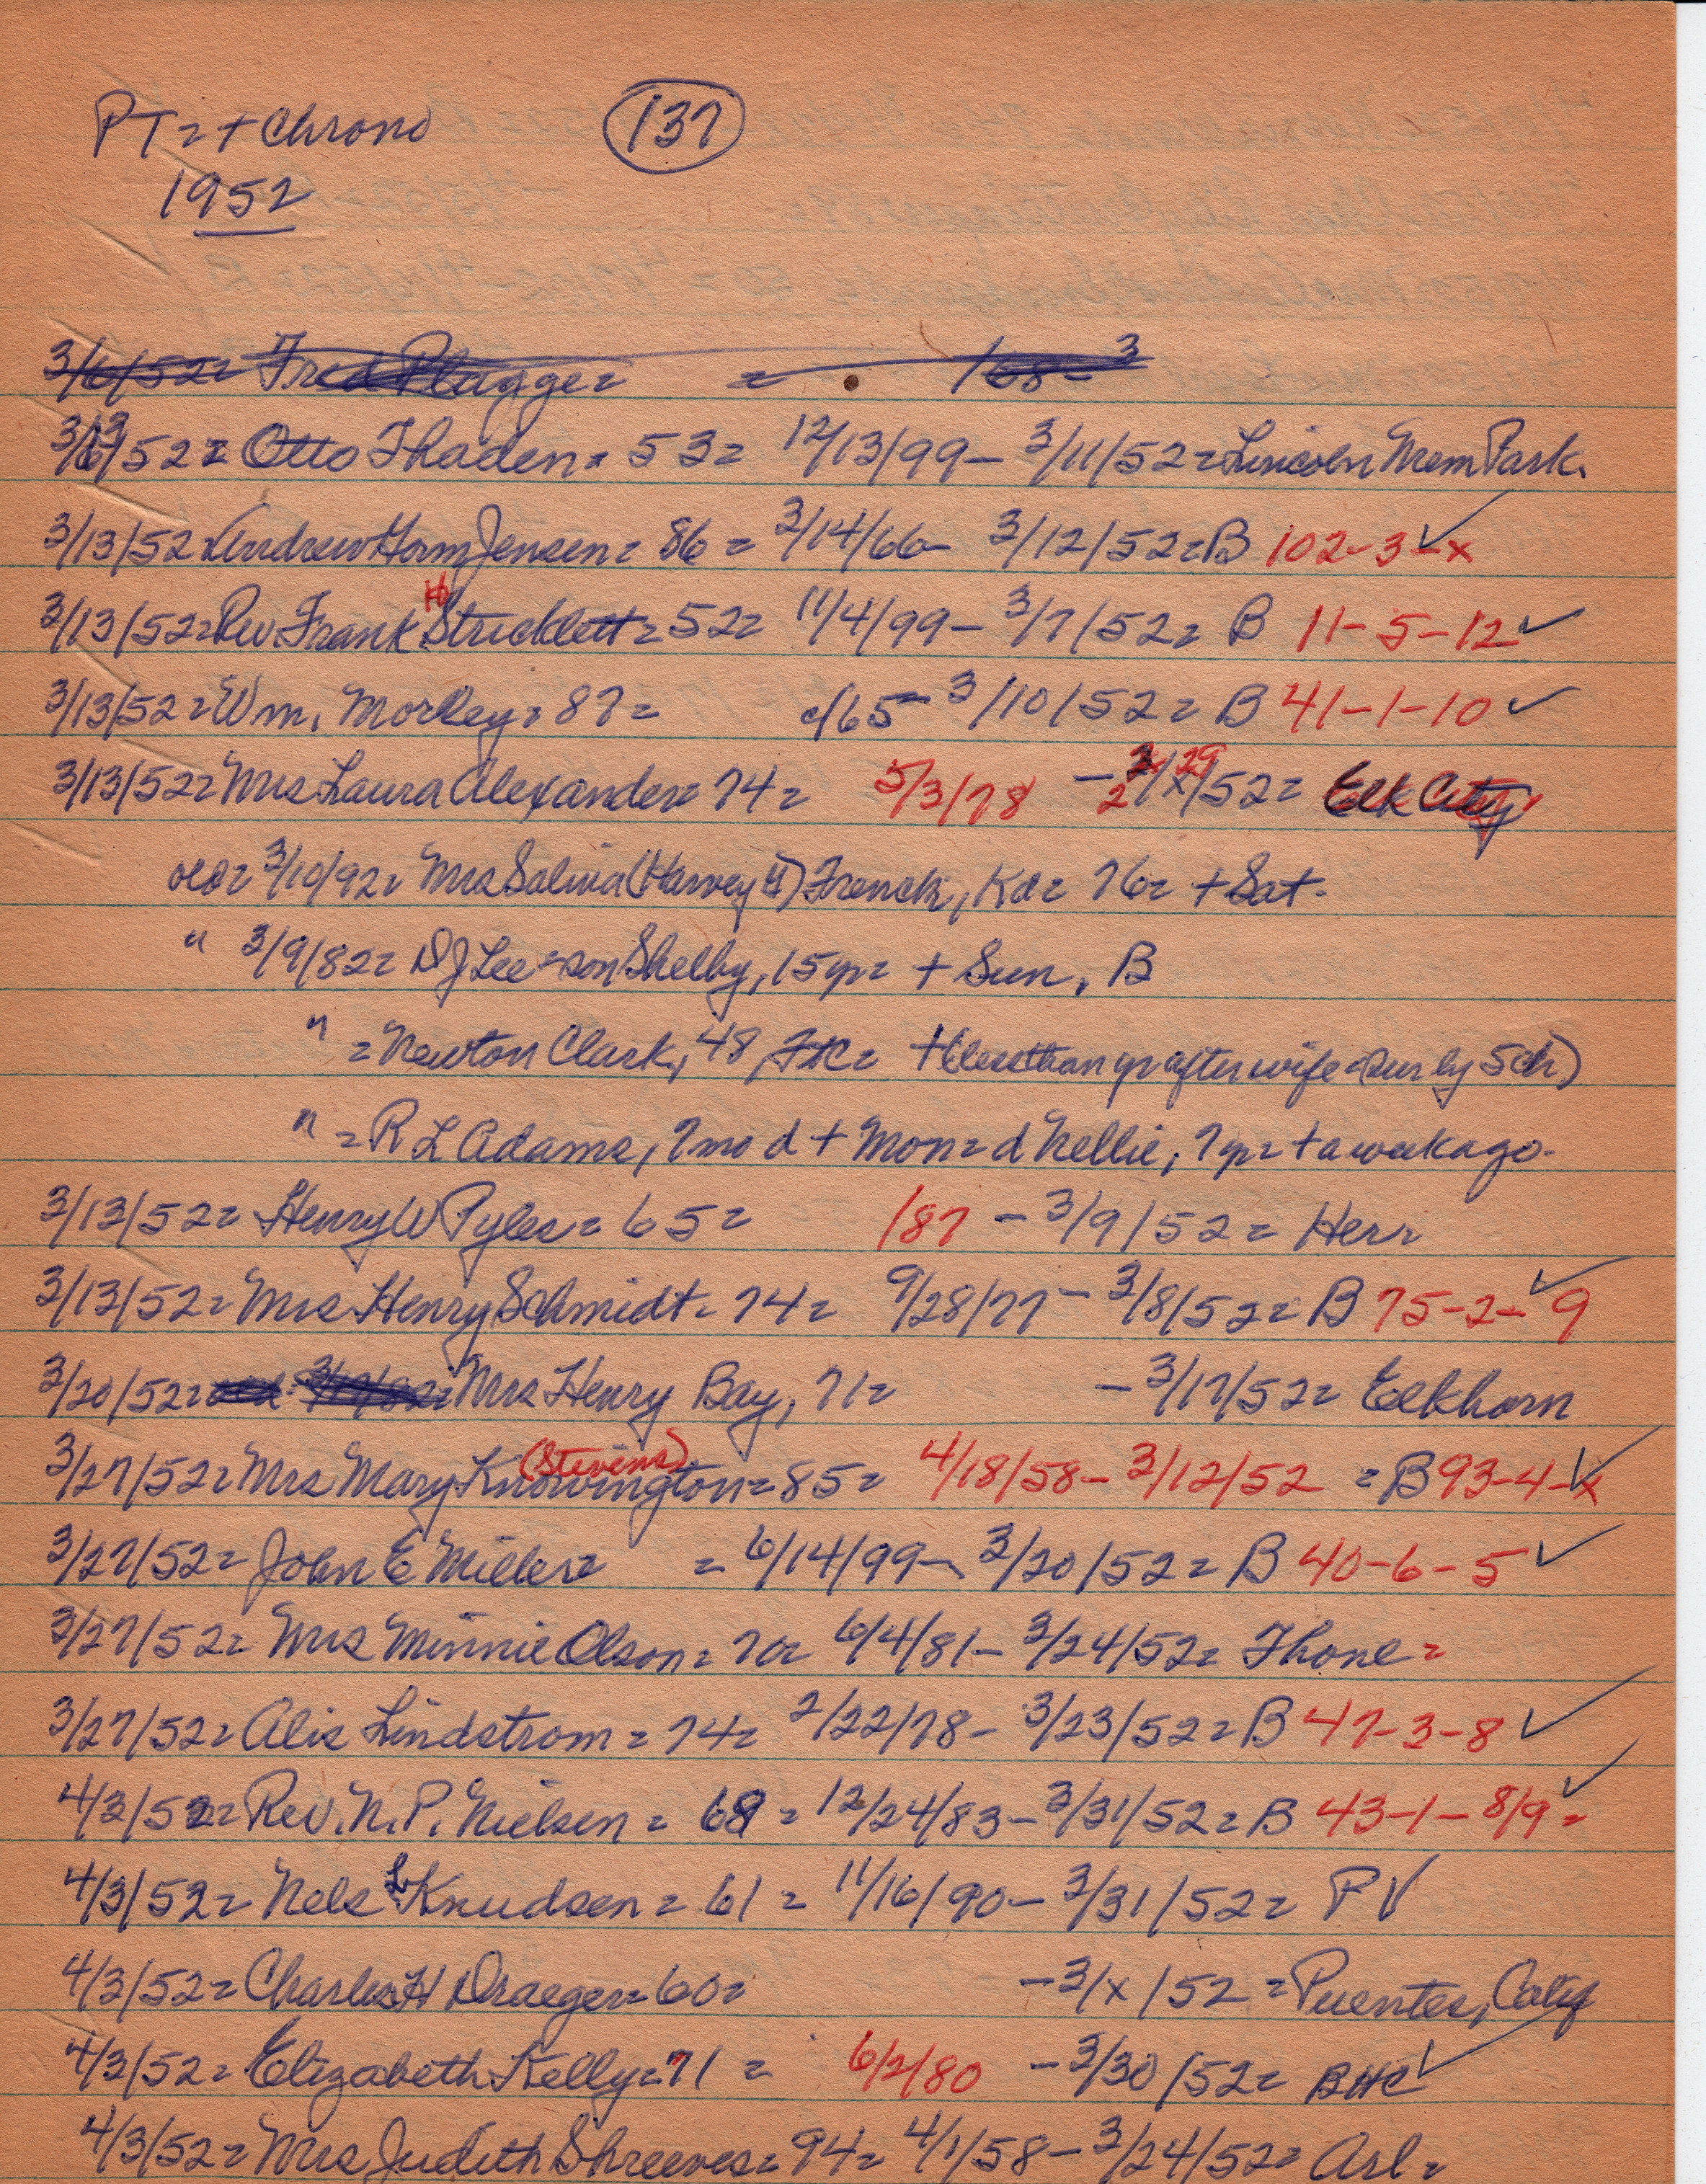 PT = + Chrono (137)
1952
3/6/52 = Fred Plagge = = /68- 3
3/13/52 = Otto Thaden = 53 = 12/13/99 - 3/11/52 = Lincoln Mem Park.
3/13/52 = Andrew Horm Jensen = 86 = 3/14/66 - 3/12/52 = B 102-3-x ✓
3/13/52 = Rev Frank H Stricklett = 52 = 11/4/99 - 3/7/52 = B 11-5-12 ✓
3/13/52 = Wm. Morley = 87 = c/65 - 3/10/52 = B 41-1-10 ✓
3/13/52 = Mrs Laura Alexander = 74 = 5/3/78 - 2/29/52 = Elk City
3/10/92 = Mrs Salina (Harvey G) French, Kd = 76 = + Sat.
" 3/9/82 = D J Lee = son Shelby, 15 yr = + Sun, B
" = Newton Clark, 48 = + (less than yr after wife = sur by 5 ch)
" = R L Adams, 7 mo d + Mon = d Nellie, 7 yr = + a week ago.
3/13/52 = Henry W Pyles = 65 = /87 - 3/9/52 = Herr
3/13/52 = Mrs Henry Schmidt = 74 = 9/28/77 - 3/8/52 = B 75-2-9 ✓
3/20/52 = Mrs Henry Bay, 71 = - 3/17/52 = Elkhorn
3/27/52 = Mrs Mary (Stevens) Knowington = 85 = 4/18/58 - 3/12/52 = B 93-4-x ✓
3/27/52 = John E Miller = = 6/14/99 - 3/20/52 = B 40-6-5 ✓
3/27/52 = Mrs Minnie Olson = 70 = 6/4/81 - 3/24/52 = Thone =
3/27/52 = Alis Lindstrom = 74 = 2/22/78 - 3/23/52 = B 47-3-8 ✓
4/3/52 = Rev. N. P. Nielsen = 68 = 12/24/83 - 3/31/52 = B 43-1-8/9 = ✓
4/3/52 = Nels L Knudsen = 61 = 11/16/90 - 3/31/52 = PV
4/3/52 = Charles H Draeger = 60 = - 3/x/52 = Puentes, Calif
4/3/52 = Elizabeth Kelly = 71 = 6/2/80 - 3/30/52 = BHC ✓
4/3/52 = Mrs Judith Shreeves = 94 = 4/1/58 - 3/24/52 = Arl =